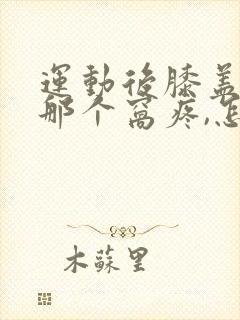 運動後膝蓋
那个窩疼,怎
木蘇里